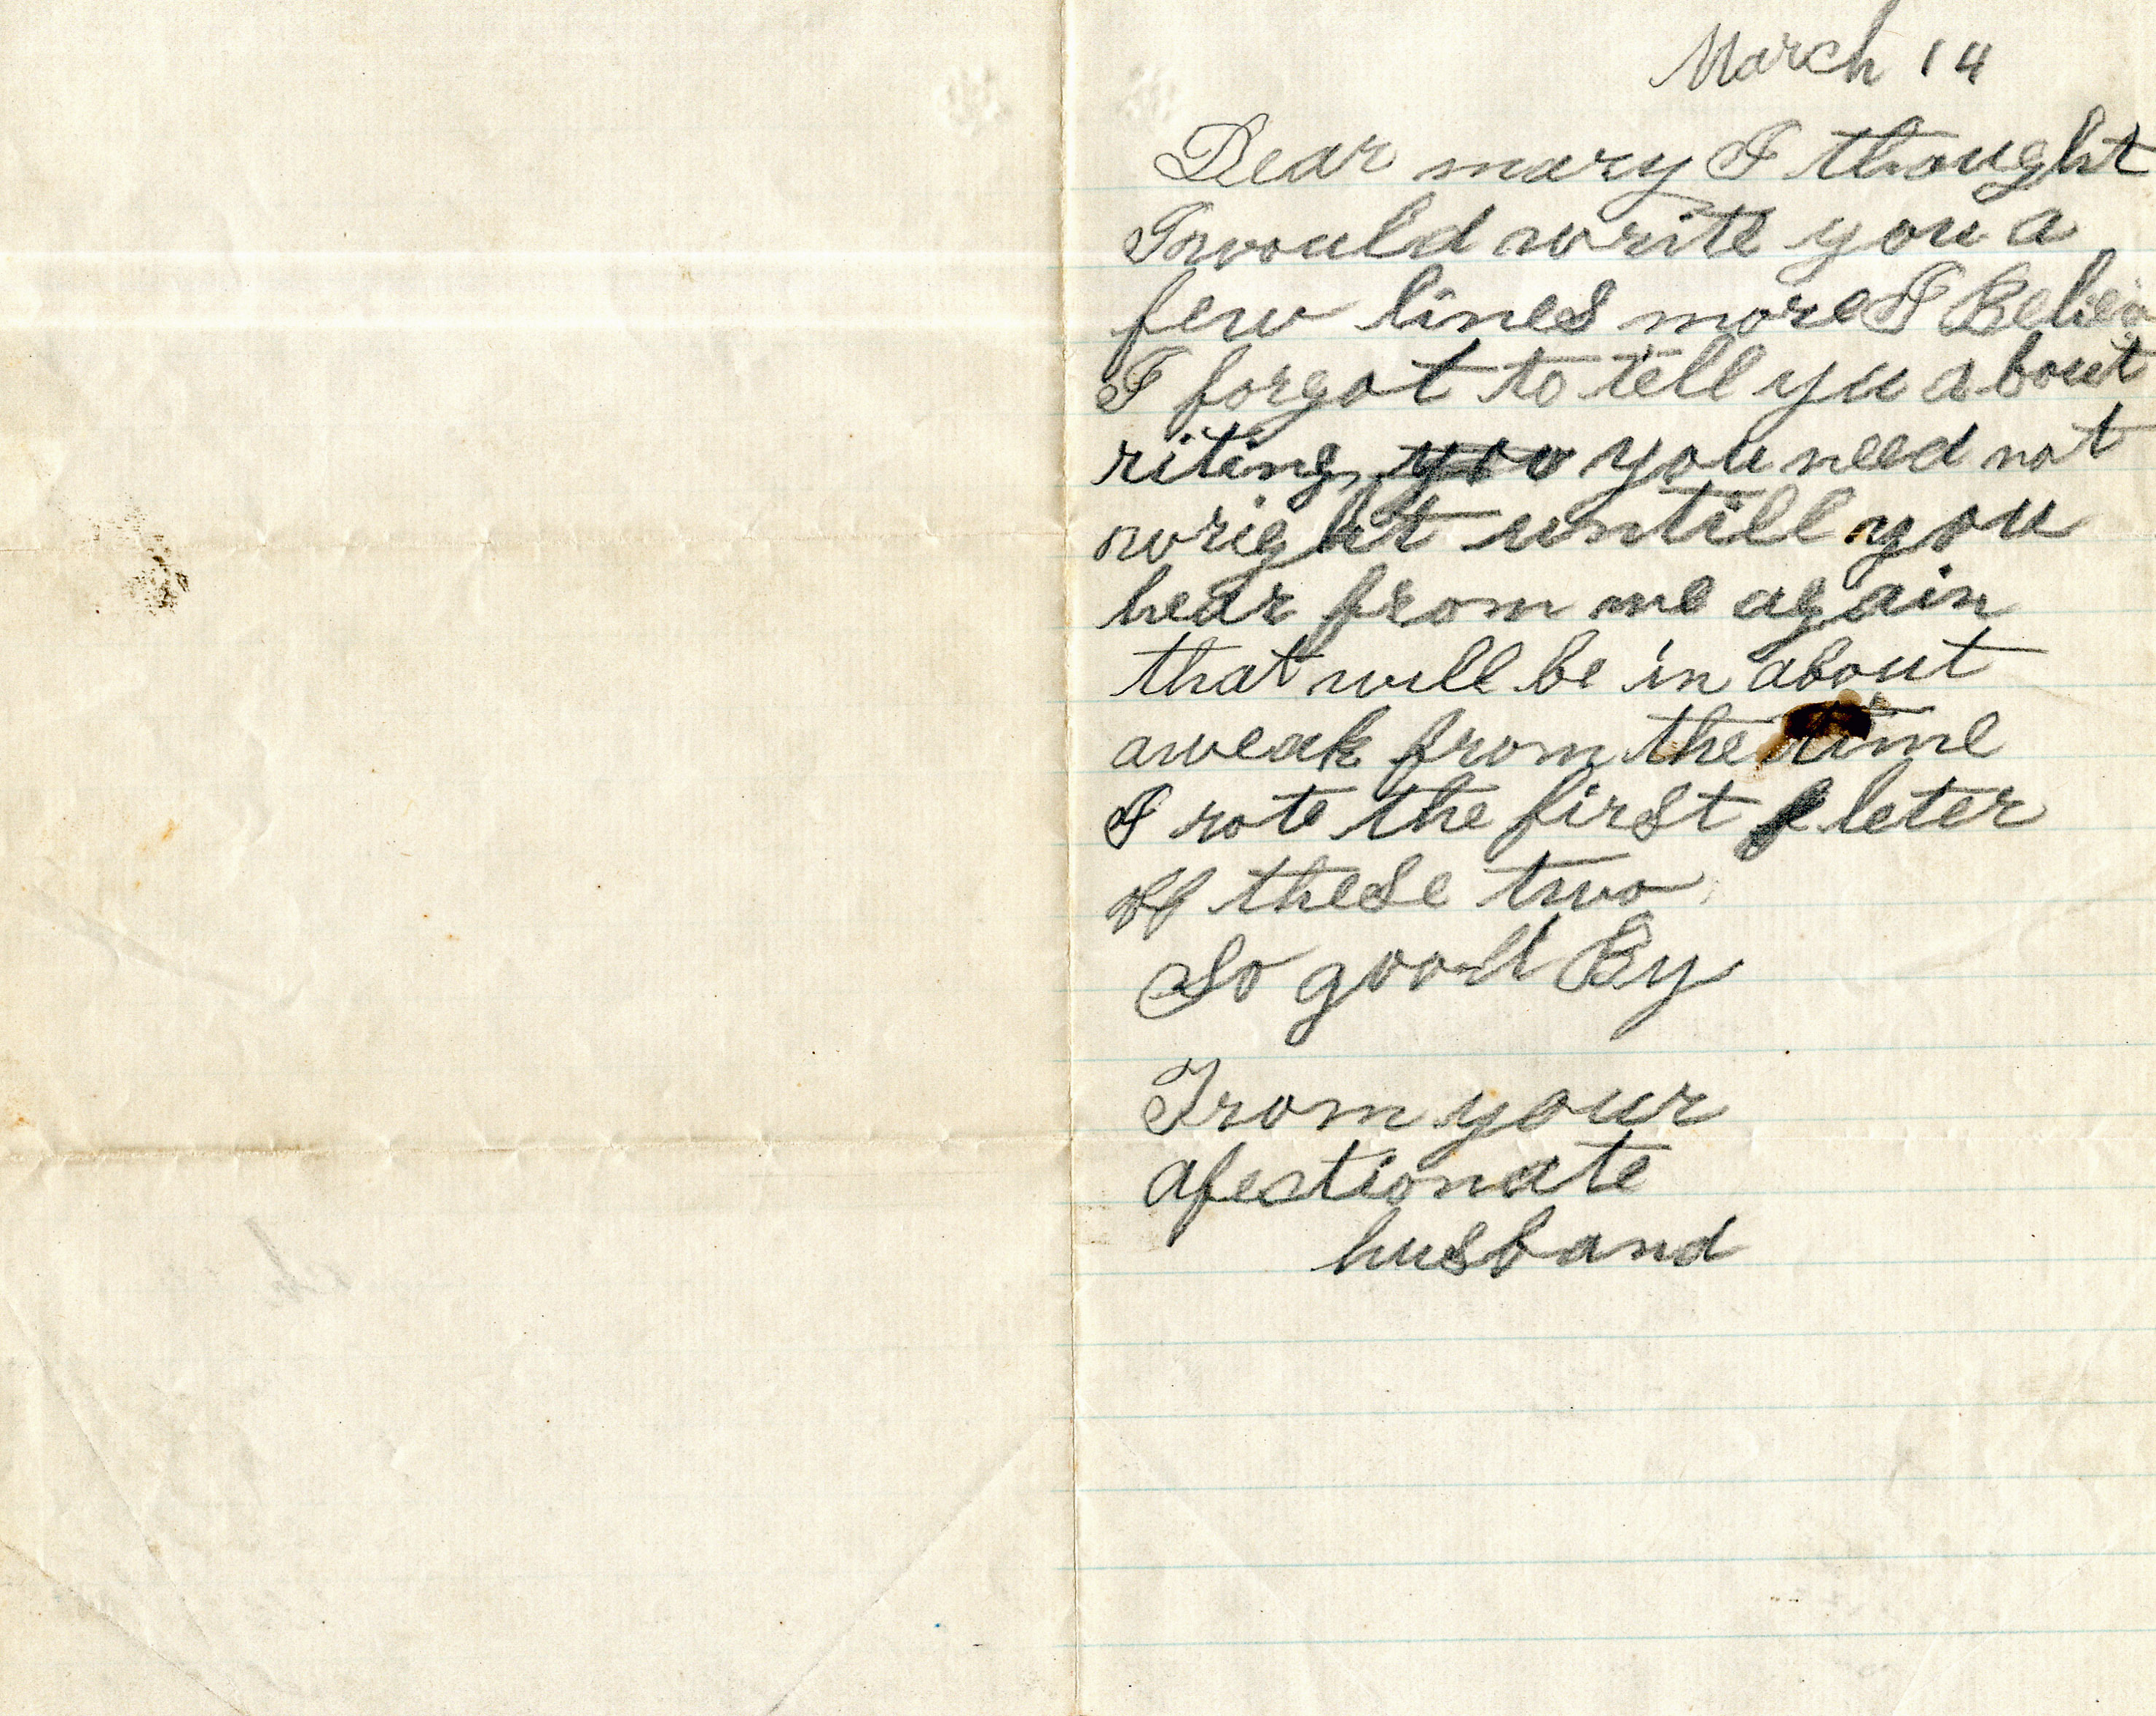 March 14
Dear mary I thought
I would write you a
few lines more I Believ
I forgot to tell yu about
riting you you need not
wright untill you
hear from me again
that will be in about
a weak from the time
I rote the first leter
of these two
So good By
From your
afectionate
husband